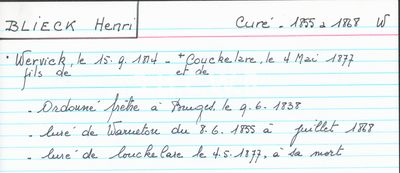 BLIECK Henri Curé - 1855 à 1868 W
° Wervick, le 15.9.1814 - + Couckelare, le 4 Mai 1877
fils de et de
- Ordonné prêtre à Bruges, le 9.6.1838
- Curé de Warneton du 8.6.1855 à juillet 1868
- Curé de Couckelare le 4.5.1877, à sa mort